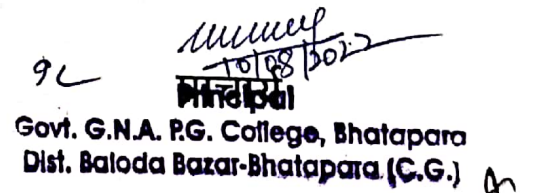 10/08/2022
प्राचार्य
Principal
Govt. G.N.A. P.G. College, Bhatapara
Dist. Baloda Bazar-Bhatapara (C.G.)